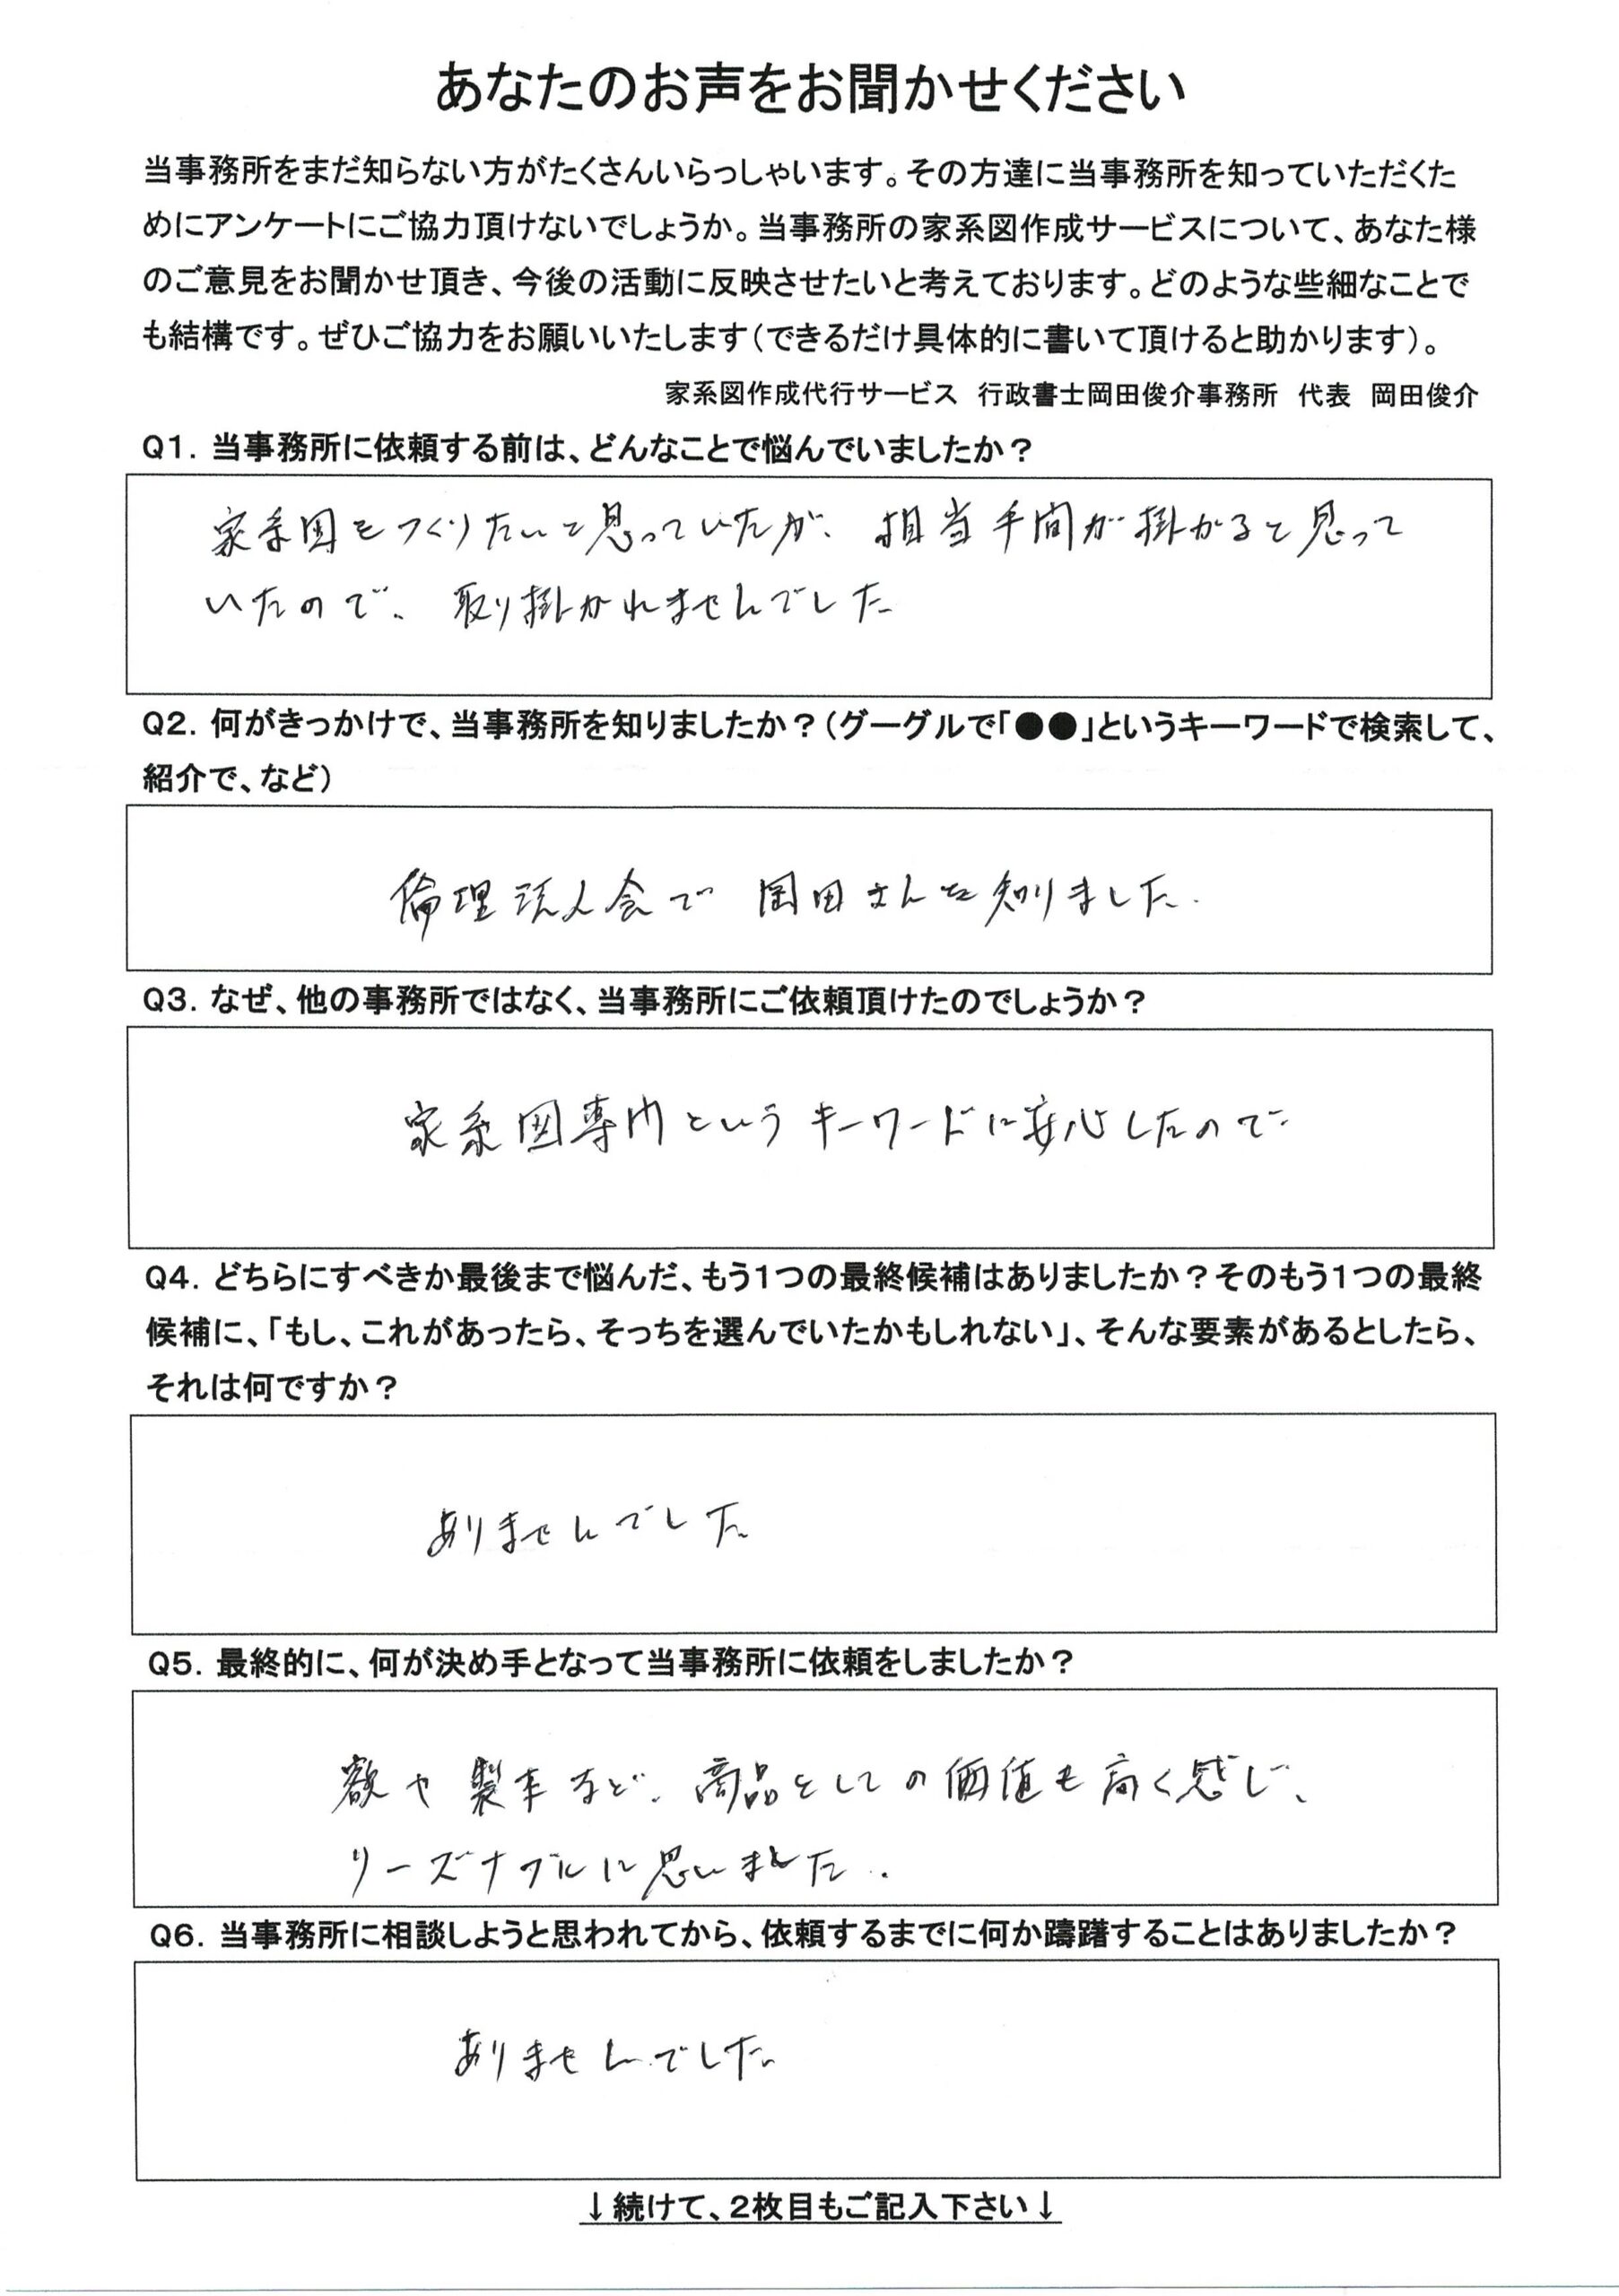 あなたのお声をお聞かせください
当事務所をまだ知らない方がたくさんいらっしゃいます。その方達に当事務所を知っていただくた
めにアンケートにご協力頂けないでしょうか。当事務所の家系図作成サービスについて、あなた様
のご意見をお聞かせ頂き、今後の活動に反映させたいと考えております。どのような些細なことで
も結構です。ぜひご協力をお願いいたします（できるだけ具体的に書いて頂けると助かります）。
家系図作成代行サービス 行政書士岡田俊介事務所 代表 岡田俊介
Q1. 当事務所に依頼する前は、どんなことで悩んでいましたか？
家系図をつくりたいと思っていたが、相当手間が掛かると思って
いたので、取り掛かれませんでした
Q2. 何がきっかけで、当事務所を知りましたか？（グーグルで「●●」というキーワードで検索して、
紹介で、など）
倫理法人会で 岡田さんを知りました.
Q3. なぜ、他の事務所ではなく、当事務所にご依頼頂けたのでしょうか？
家系図専門というキーワードに安心したので
Q4. どちらにすべきか最後まで悩んだ、もう1つの最終候補はありましたか？そのもう1つの最終
候補に、「もし、これがあったら、そっちを選んでいたかもしれない」、そんな要素があるとしたら、
それは何ですか？
ありませんでした
Q5. 最終的に、何が決め手となって当事務所に依頼をしましたか？
額や製本など、商品としての価値も高く感じ、
リーズナブルに思いました.
Q6. 当事務所に相談しようと思われてから、依頼するまでに何か躊躇することはありましたか？
ありませんでした
↓続けて、2枚目もご記入下さい↓